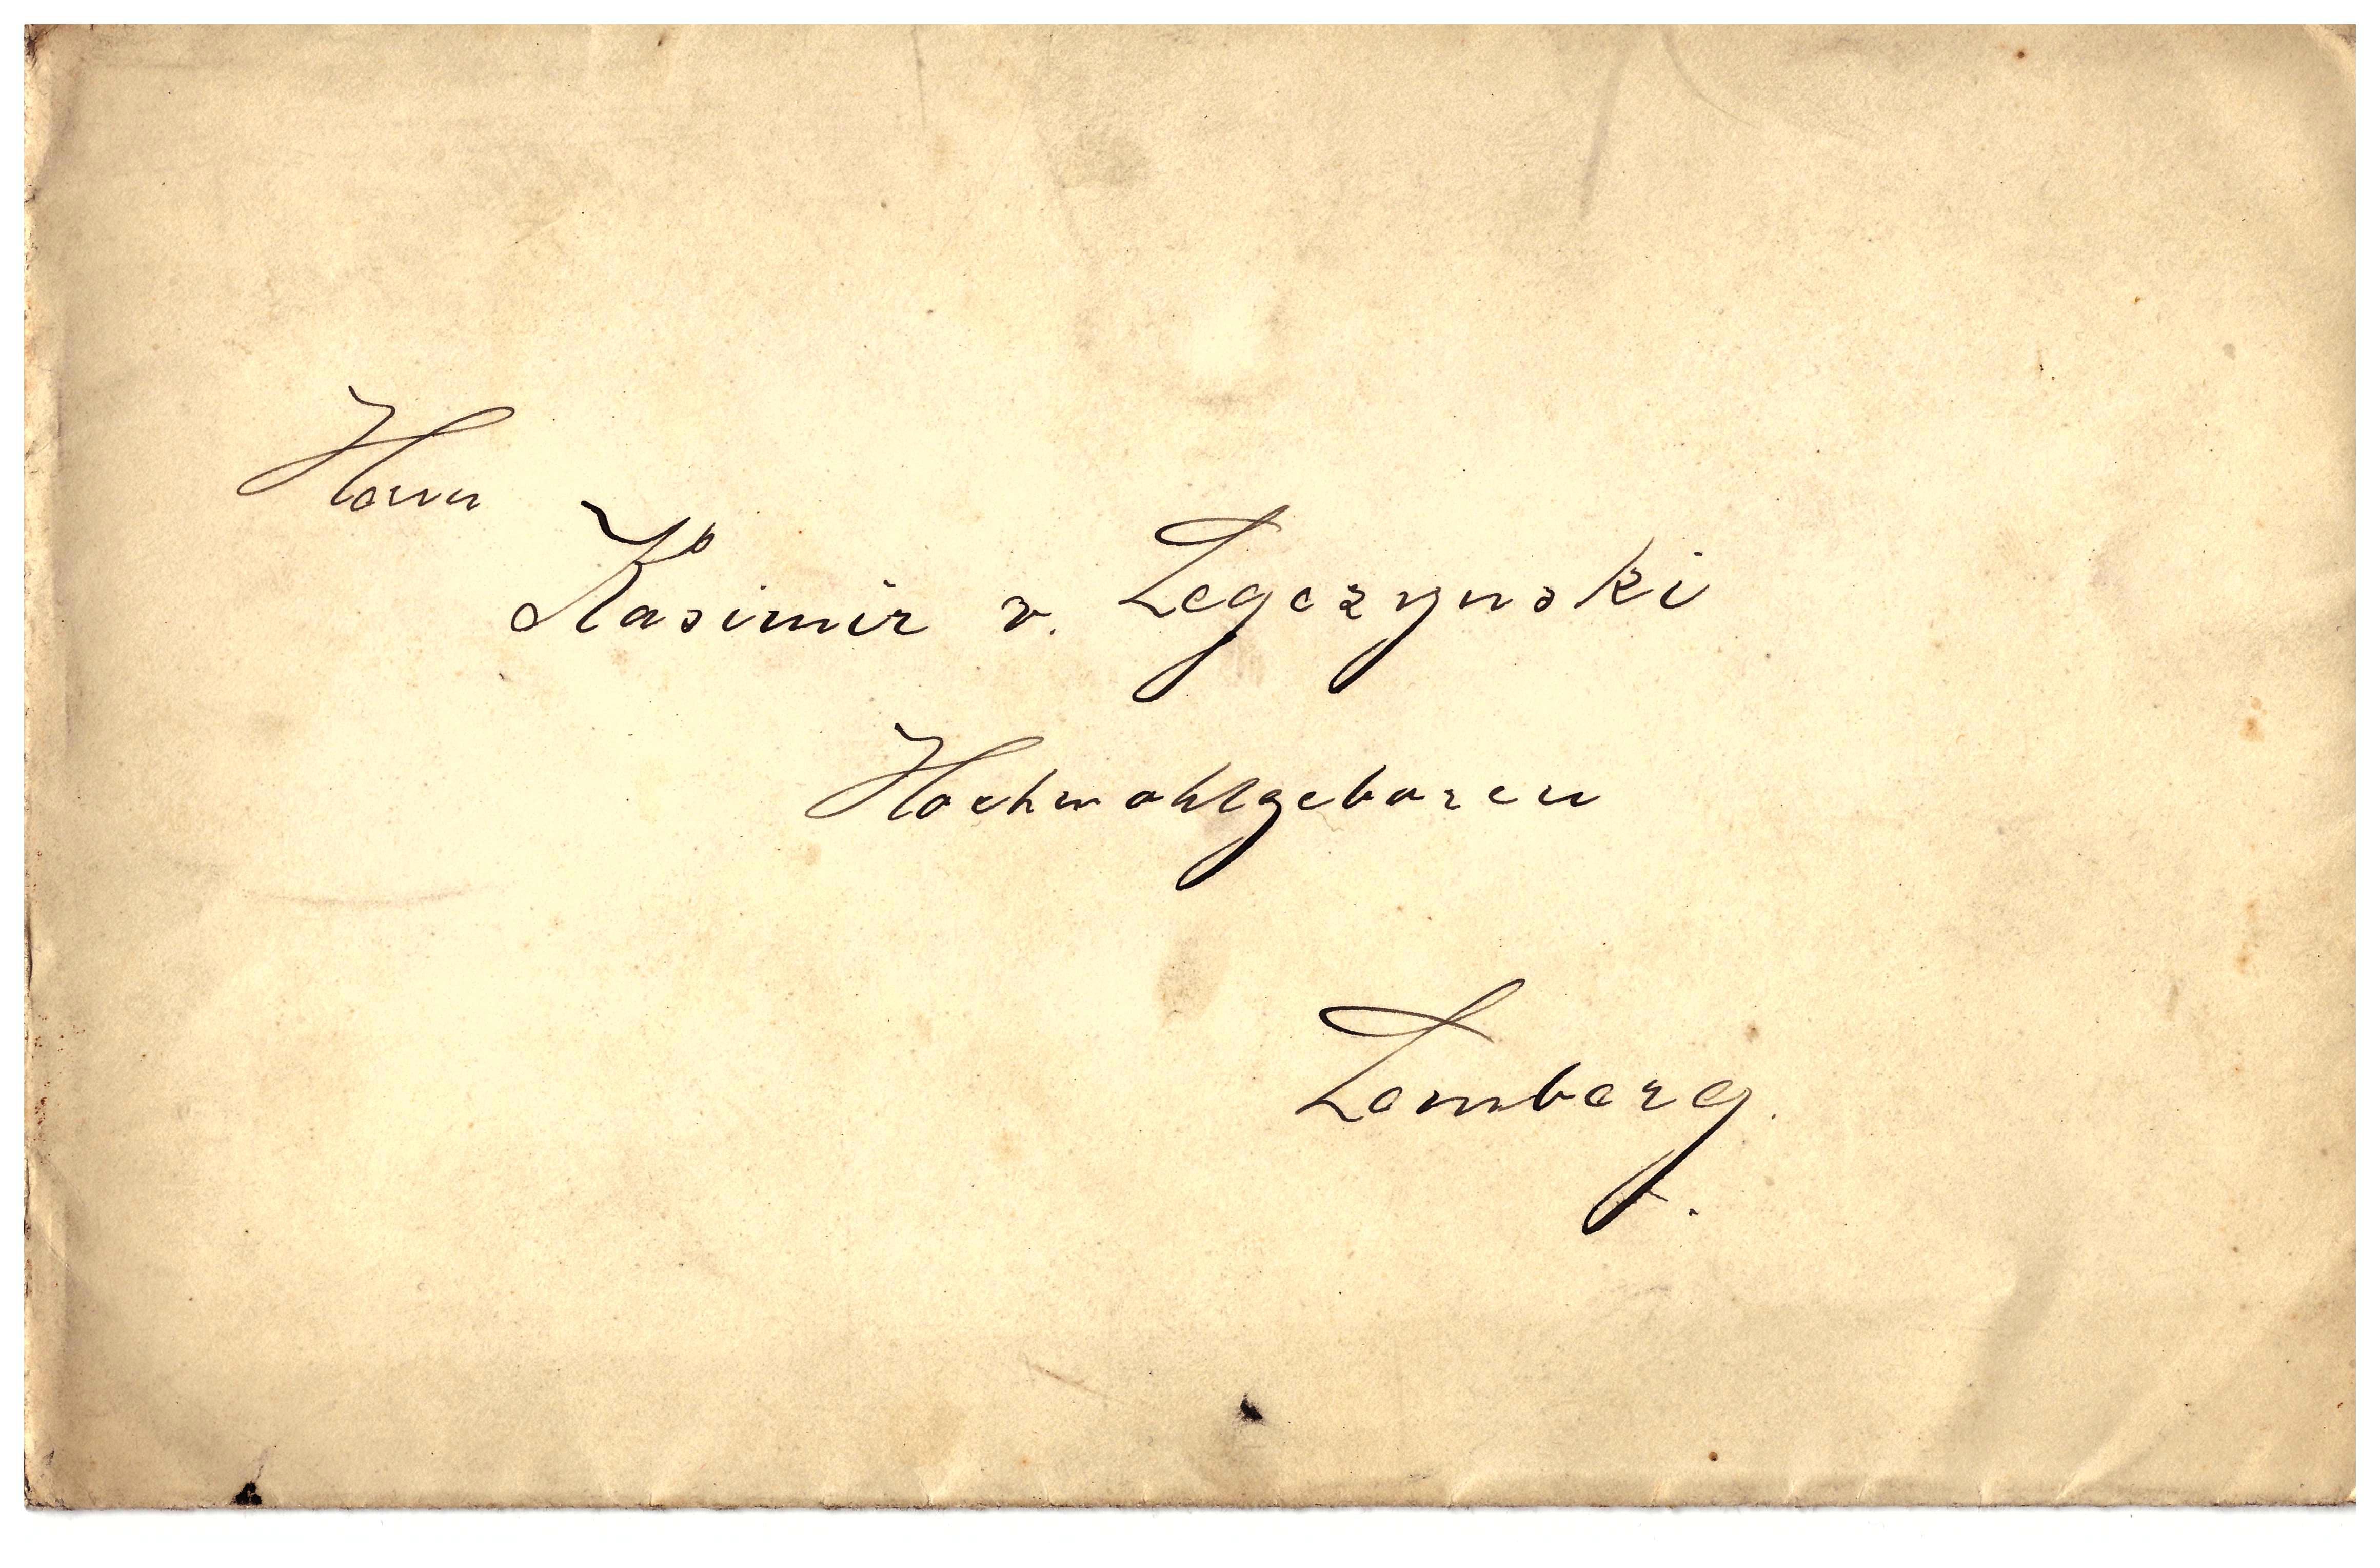 Herrn
Kasimir v. Legezynski
Hochwohlgeboren
Lemberg.